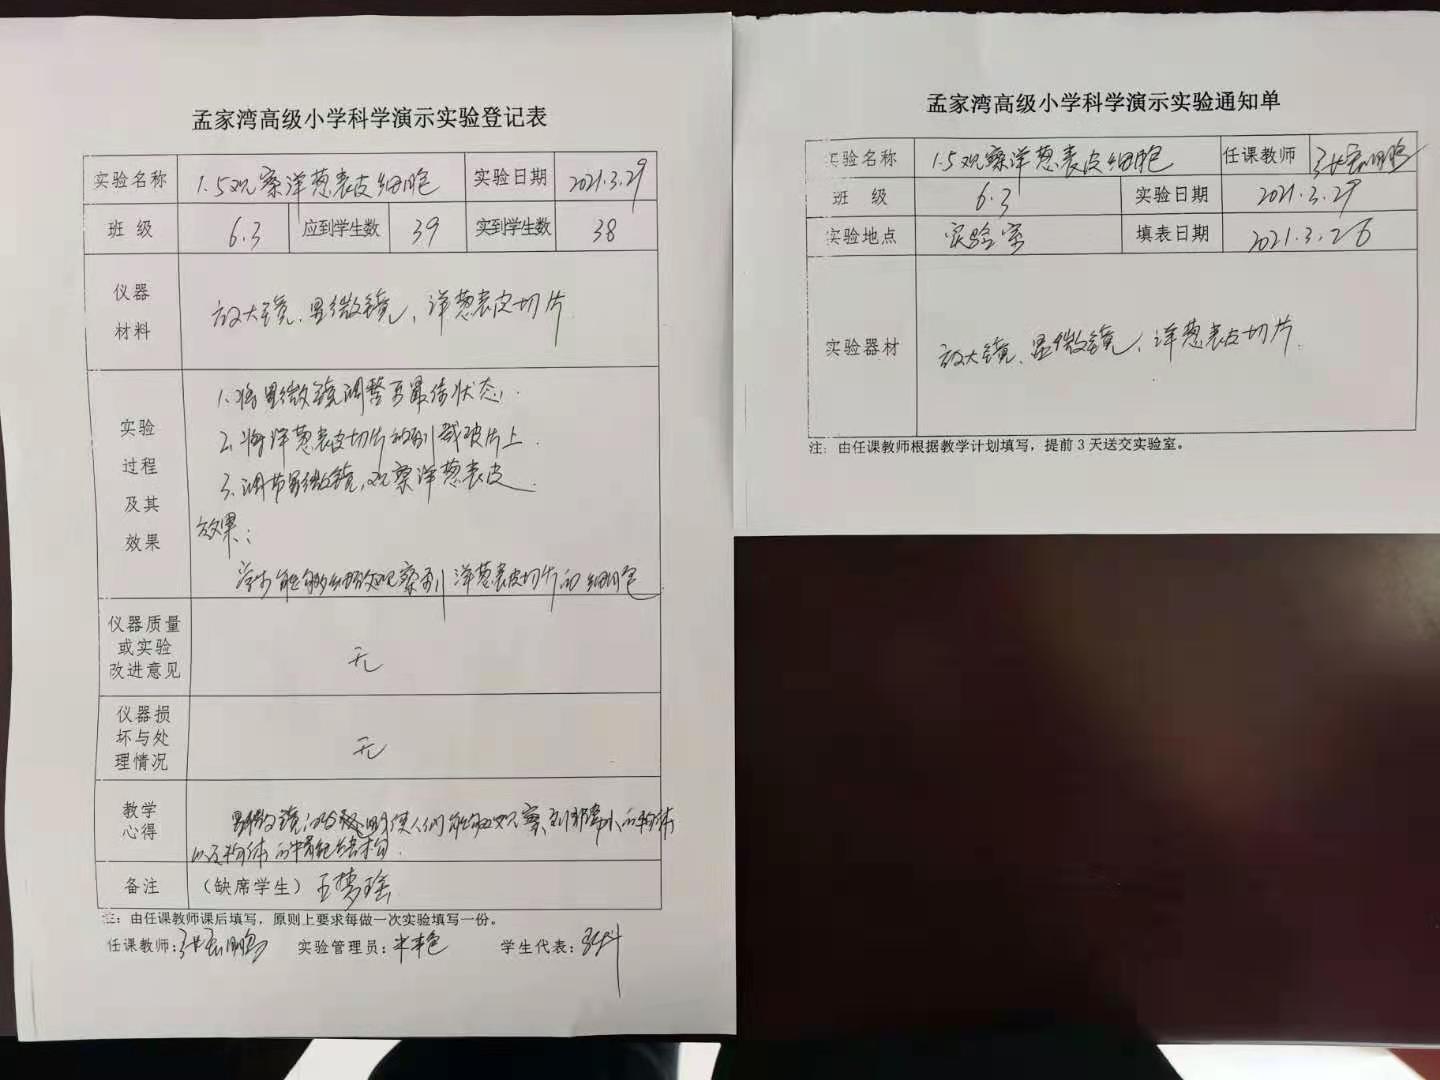 孟家湾高级小学科学演示实验登记表
实验名称 1.5观察洋葱表皮细胞 实验日期 2021.3.29
班 级 6.3 应到学生数 39 实到学生数 38
仪器
材料
放大镜、显微镜、洋葱表皮切片
实验
过程
及其
效果
1.将显微镜调整至最佳状态.
2.将洋葱表皮切片放到载玻片上.
3.调节显微镜,观察洋葱表皮.
效果:
学生能够细致观察到洋葱表皮切片的细胞
仪器质量
或实验
改进意见
无
仪器损
坏与处
理情况
无
教学
心得
显微镜的发明使人们能够观察到非常小的物体
以及物体的精细结构.
备注 (缺席学生) 王梦瑶
注:由任课教师课后填写,原则上要求每做一次实验填写一份。
任课教师: 实验管理员: 学生代表:
孟家湾高级小学科学演示实验通知单
实验名称 1.5观察洋葱表皮细胞 任课教师
班 级 6.3 实验日期 2021.3.29
实验地点 实验室 填表日期 2021.3.26
实验器材 放大镜、显微镜、洋葱表皮切片.
注:由任课教师根据教学计划填写,提前3天送交实验室。